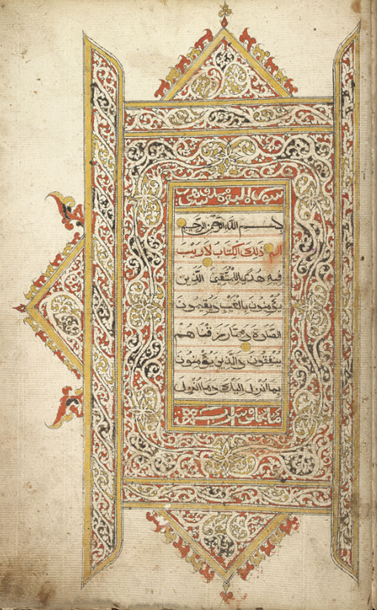 سورة البقرة
بسم الله الرحمن الرحيم
الم ذلك الكتاب لا ريب
فيه هدى للمتقين الذين
يؤمنون بالغيب ويقيمون
الصلوة ومما رزقناهم
ينفقون والذين يؤمنون
بما انزل اليك وما انزل